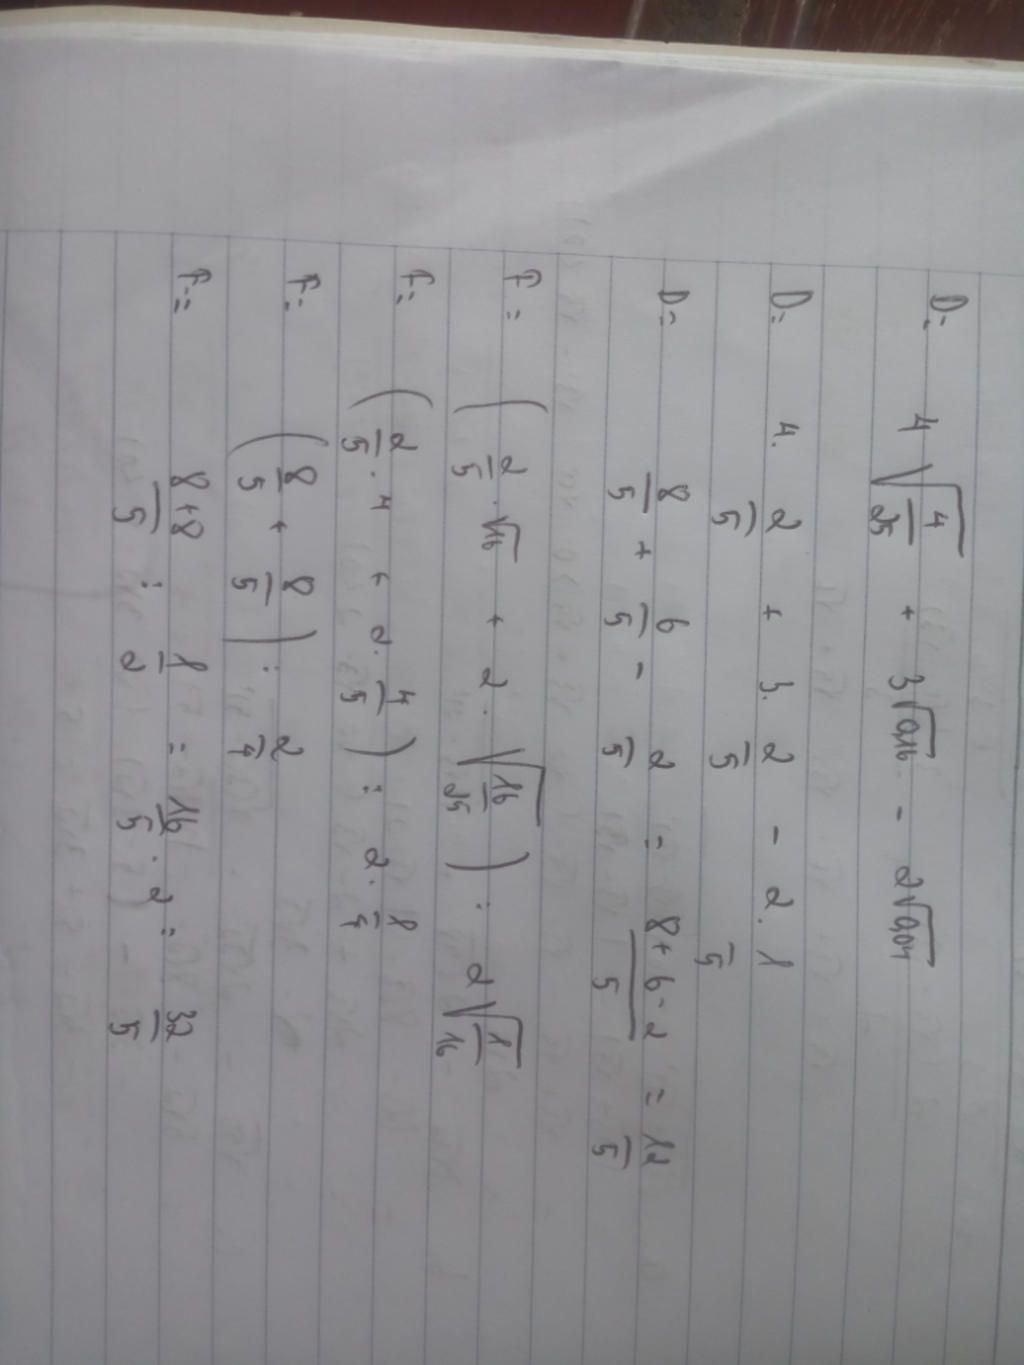 D= 4√(4/25) + 3√0,16 - 2√0,04
D= 4. 2/5 + 3. 2/5 - 2. 1/5
D= 8/5 + 6/5 - 2/5 = (8+6-2)/5 = 12/5
F= (2/5 . √16 + 2. √(16/25)) : 2√(1/16)
F= (2/5 . 4 + 2. 4/5) : 2. 1/4
F= (8/5 + 8/5) : 2/4
F= (8+8)/5 : 1/2 = 16/5 . 2 = 32/5